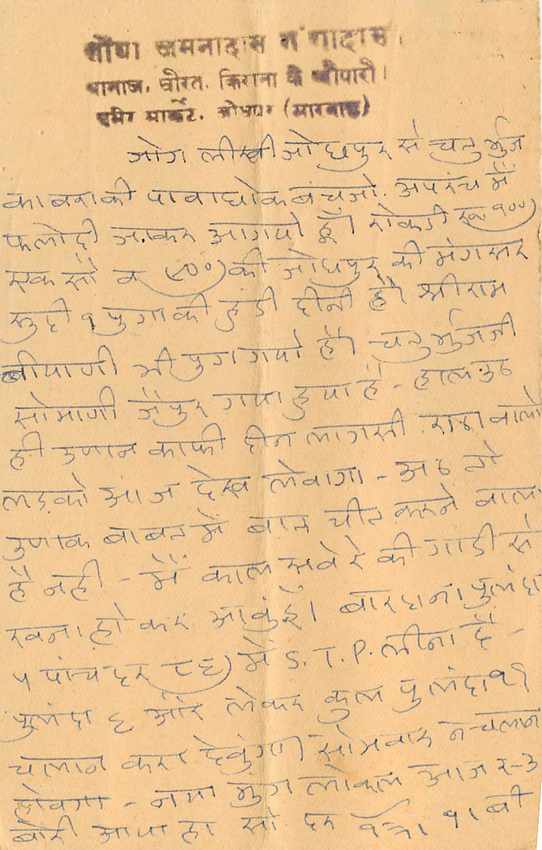 जमनादास गंगादास।
धानाज, घीरत, किराना के बौपारी।
मार्केट. जोधपुर (मारवाड़)
जोग लीखी जोधपुर से चतुर्भुज
काबराकी पावाधोक बंचजो. अपरंच में
फलोदी जाकर आगयो हूँ। रोकडी रु १००)
एक सौ व की जोधपुर की मंगसर
सुदी १ पुगाकी हुंडी दीनी है। श्रीराम
बीयाणी भी पुगगयो है। चतुर्भुजजी
सोमाणी जैपुर गया हुया है - हाल उठ
ही उणान काफी दीन लागसी. वालो
लड़को आज देख लेवागा - अठे तो
उणाक बाबत में बात चीत करने वाला
है नही - मैं काल सवेरे की गाडी से
रवना होकर आवुंहूं। बारदाना पुलंदा
५ पांच दर में S.T.P. लीना है -
पुलंदा ६ और लेकर कुल पुलंदा ११
चालान करा देवुंगा। सोमवार ने चलान
होवेगा - नया मुग लोकल आज २-३
बोरी आया हा सो दर